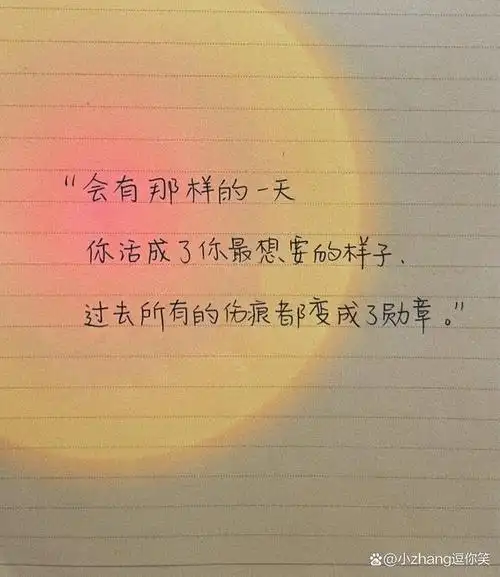 “会有那样的一天
你活成了你最想要的样子.
过去所有的伤痕都变成了勋章。”
@小zhang逗你笑